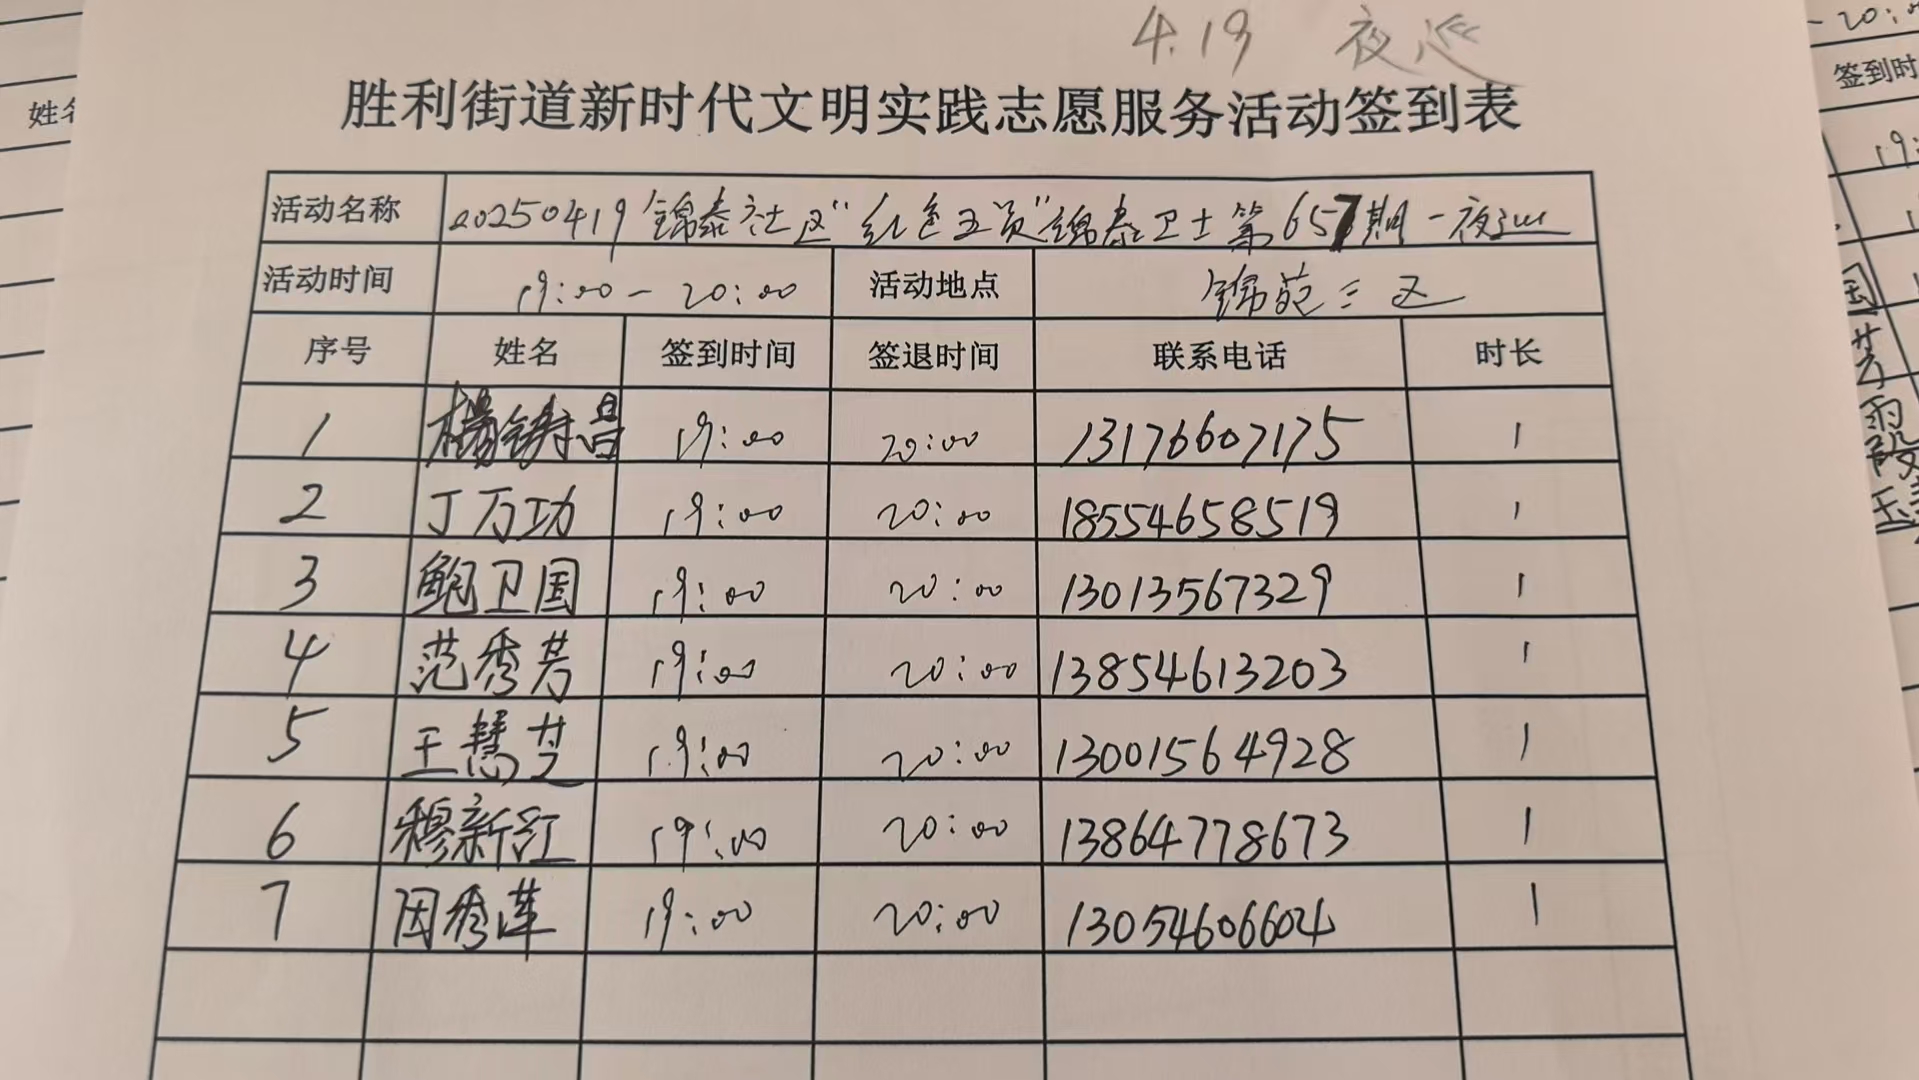 4.19 夜巡
胜利街道新时代文明实践志愿服务活动签到表
活动名称 20250419锦泰社区“红色五员”锦泰卫士第657期-夜巡
活动时间 19:00-20:00 活动地点 锦苑三区
序号 姓名 签到时间 签退时间 联系电话 时长
1 杨铸昌 19:00 20:00 13176607175 1
2 丁万功 19:00 20:00 18554658519 1
3 鲍卫国 19:00 20:00 13013567329 1
4 范秀芳 19:00 20:00 13854613203 1
5 王慧芝 19:00 20:00 13001564928 1
6 穆新红 19:00 20:00 13864778673 1
7 因秀莲 19:00 20:00 13054606604 1
姓名
签到时